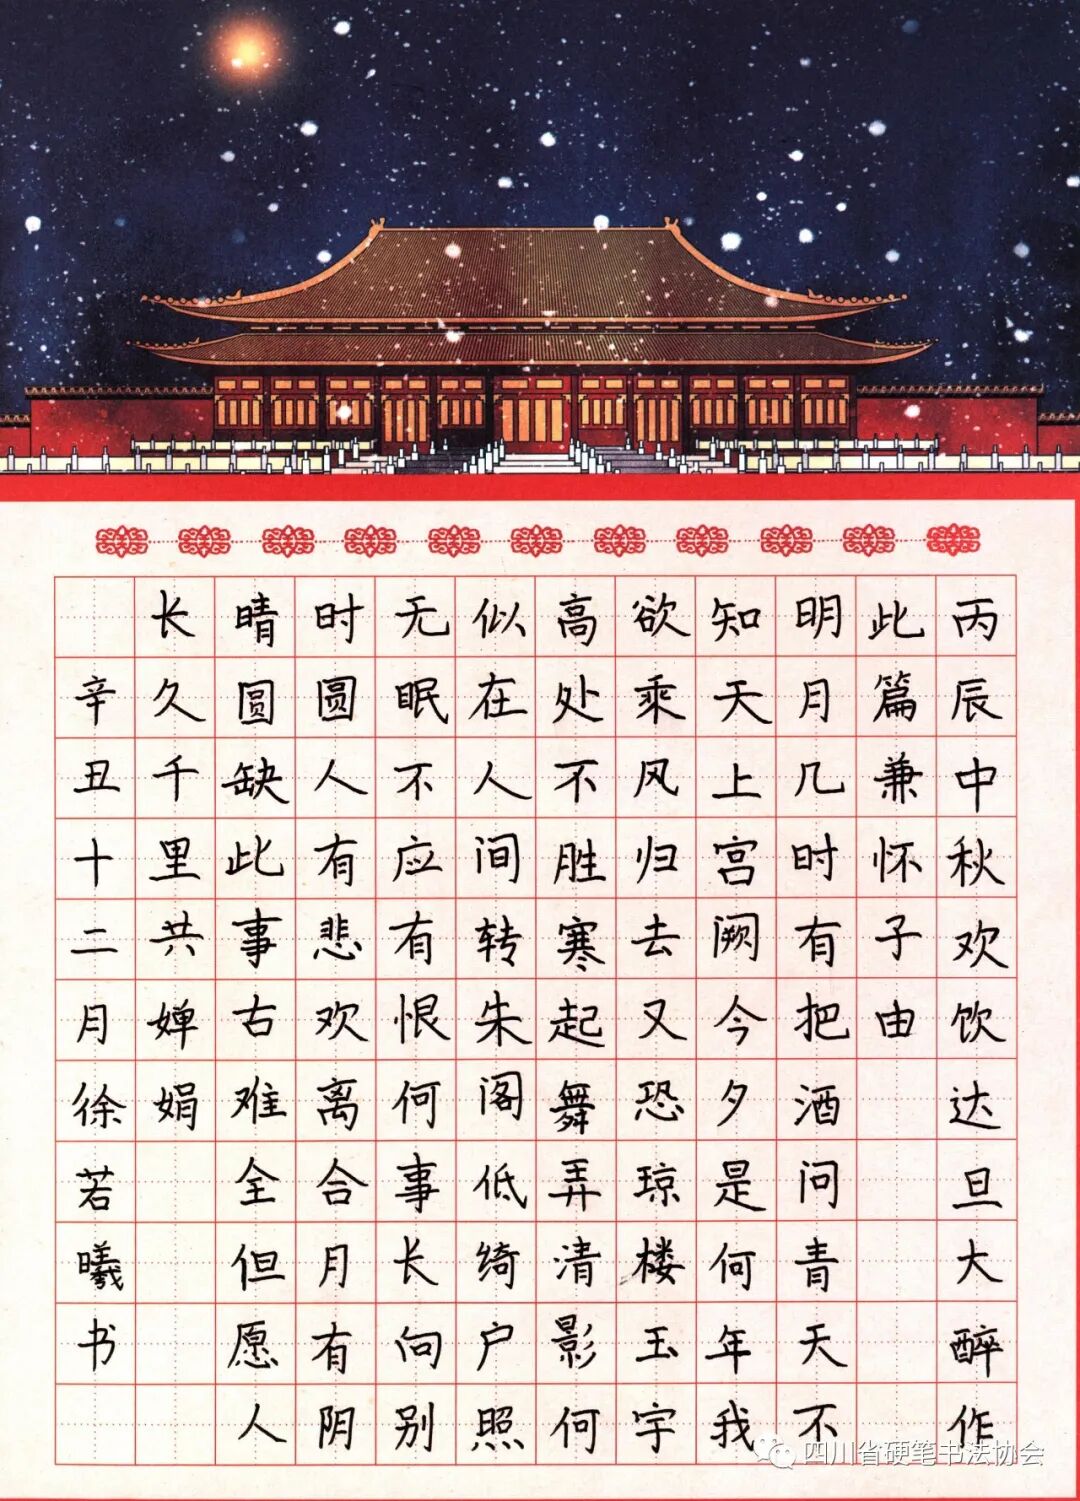 丙辰中秋欢饮达旦大醉作
此篇兼怀子由
明月几时有把酒问青天不
知天上宫阙今夕是何年我
欲乘风归去又恐琼楼玉宇
高处不胜寒起舞弄清影何
似在人间转朱阁低绮户照
无眠不应有恨何事长向别
时圆人有悲欢离合月有阴
晴圆缺此事古难全但愿人
长久千里共婵娟
辛丑十二月徐若曦书
四川省硬笔书法协会